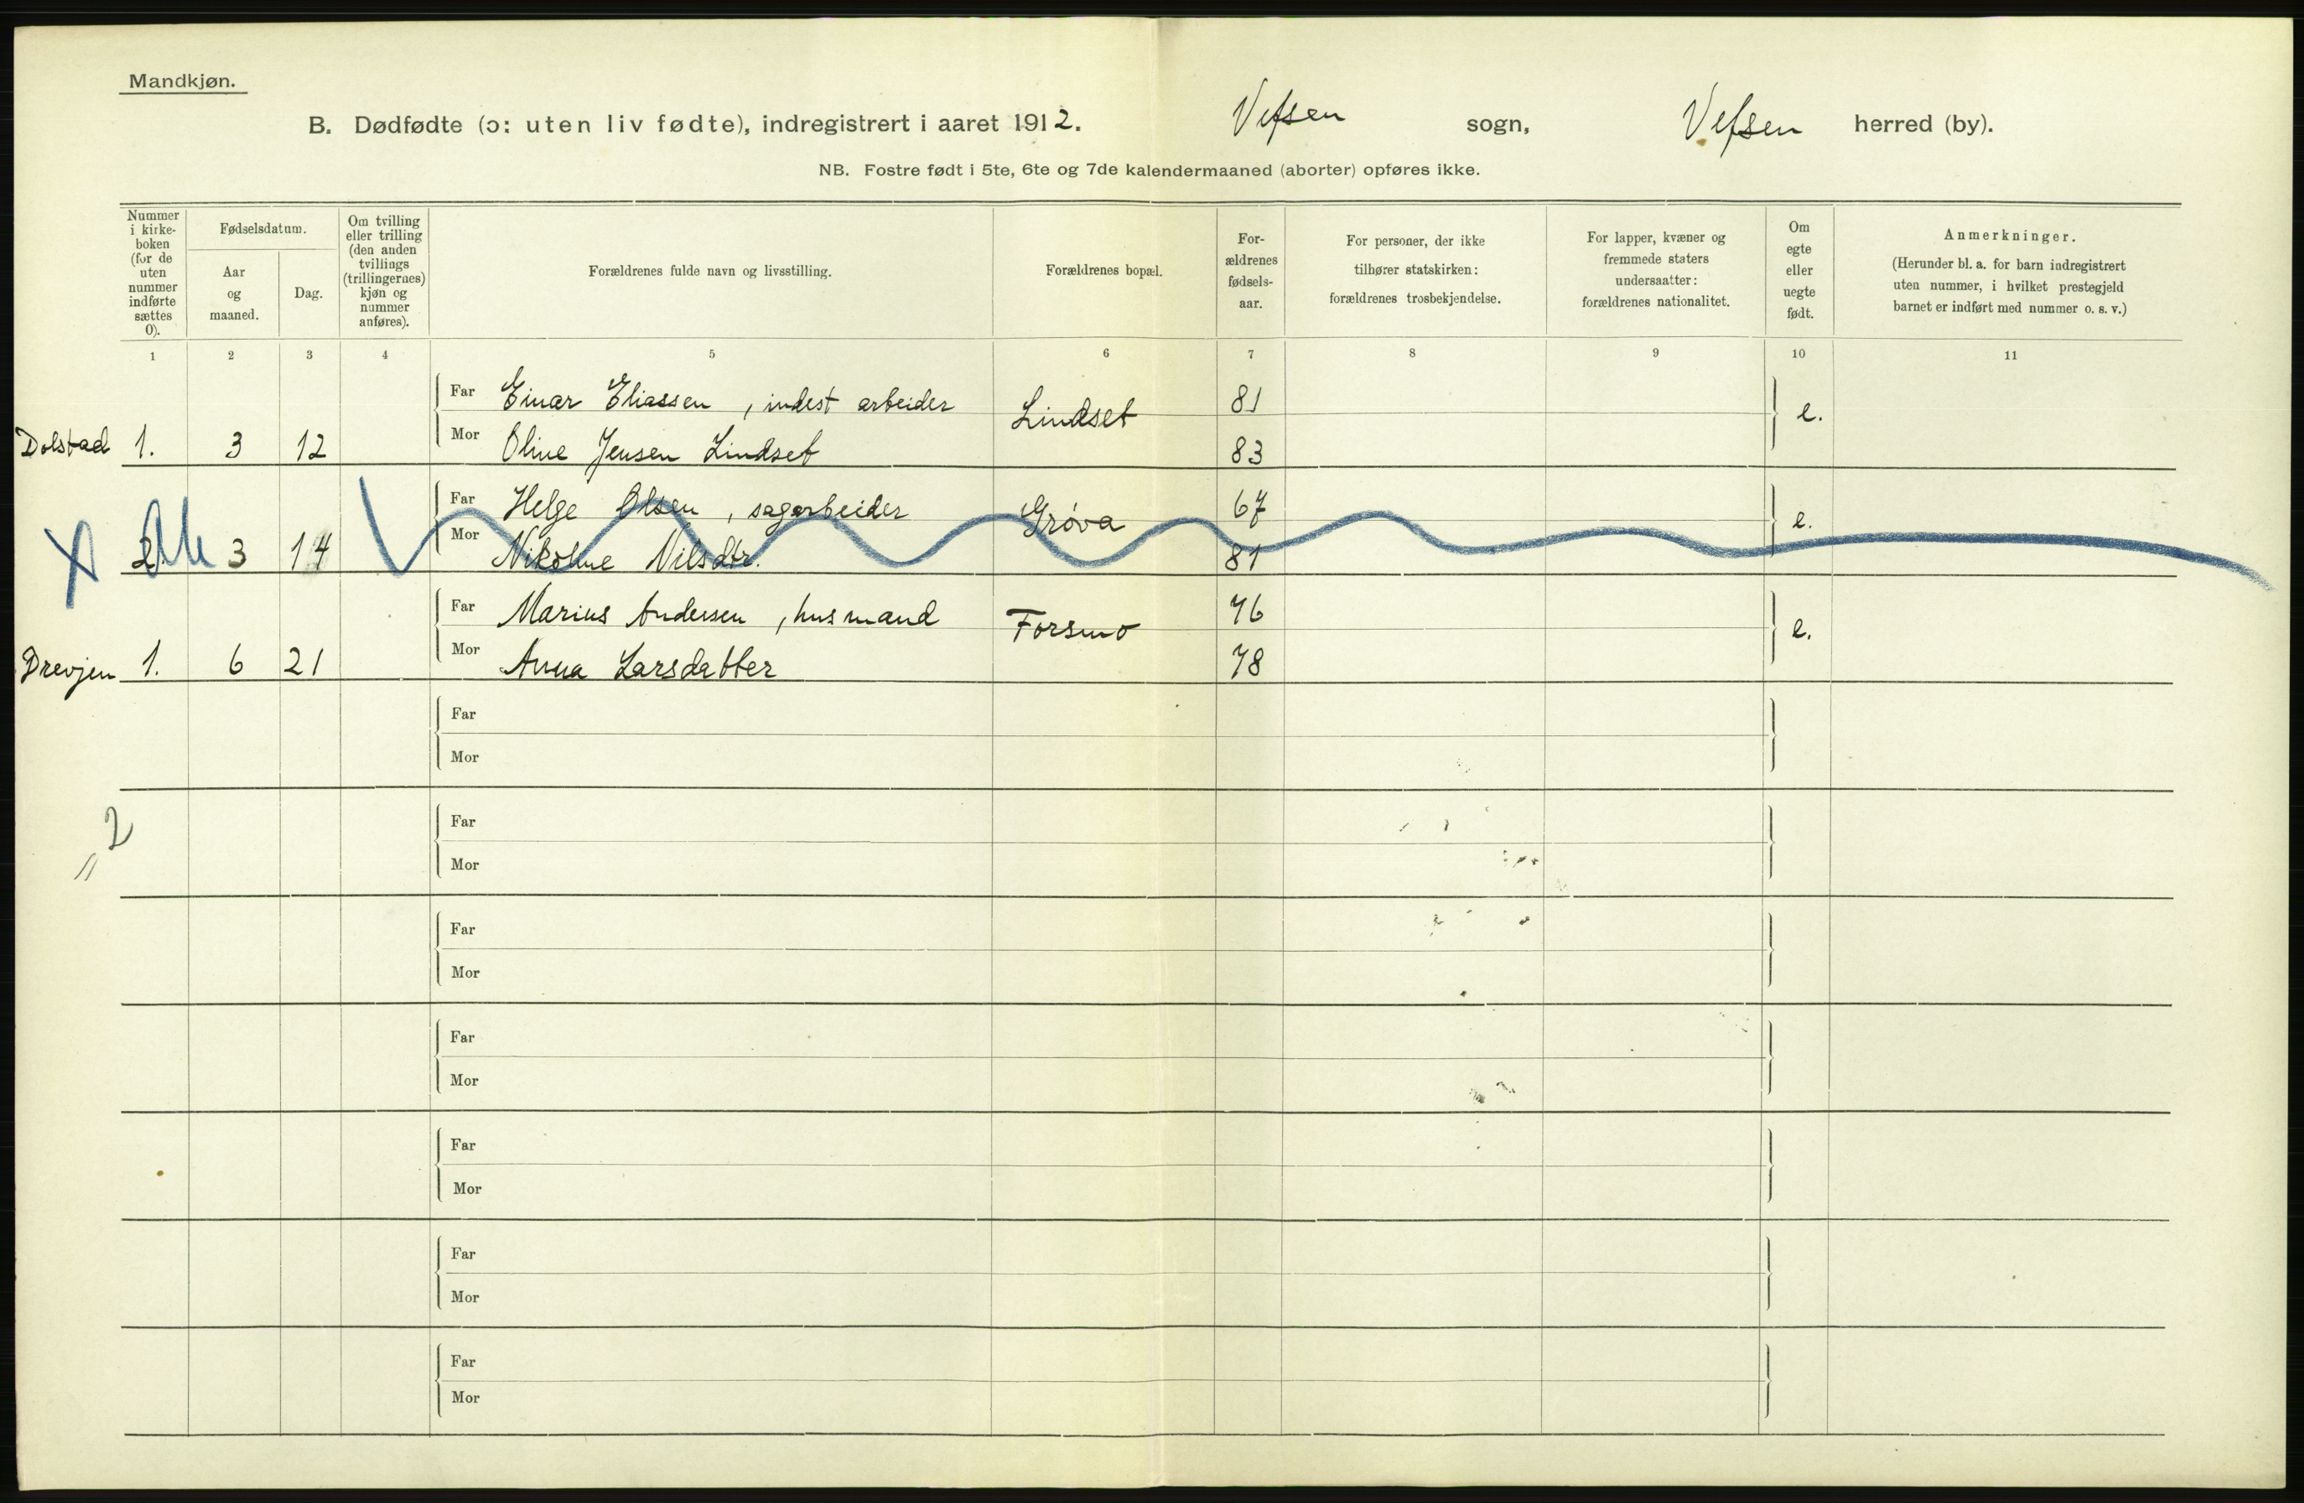 Mandkjøn.
B. Dødfødte (ɔ: uten liv fødte), indregistrert i aaret 1912. Vefsen sogn, Vefsen herred (by).
NB. Fostre født i 5te, 6te og 7de kalendermaaned (aborter) opføres ikke.
Nummer i kirke-boken (for de uten nummer indførte sættes 0).
Fødselsdatum.
Aar og maaned.
Dag.
Om tvilling eller trilling (den anden tvillings (trillingernes) kjøn og nummer anføres).
Forældrenes fulde navn og livsstilling.
Forældrenes bopæl.
For-ældrenes fødsels-aar.
For personer, der ikke tilhører statskirken: forældrenes trosbekjendelse.
For lapper, kvæner og fremmede staters undersaatter: forældrenes nationalitet.
Om egte eller uegte født.
Anmerkninger.
(Herunder bl. a. for barn indregistrert uten nummer, i hvilket prestegjeld barnet er indført med nummer o. s. v.)
1 2 3 4 5 6 7 8 9 10 11
Far Einar Eliassen, indest arbeider Lindset 81 e.
Dolstad 1. 3 12 Mor Oline Jensen Lindset 83
Far Helge Olsen, sagarbeider Grøva 67 e.
2 3 14 Mor Nikoline Nilsdtr. 81
Far Marius Andersen, husmand Forsmo 76 e.
Drevjen 1. 6 21 Mor Anna Larsdatter 78
Far
Mor
2
Far
Mor
Far
Mor
Far
Mor
Far
Mor
Far
Mor
Far
Mor